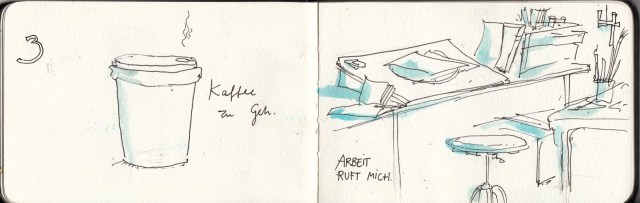 3
Kaffee
zu Geh.
ARBEIT
RUFT MICH.